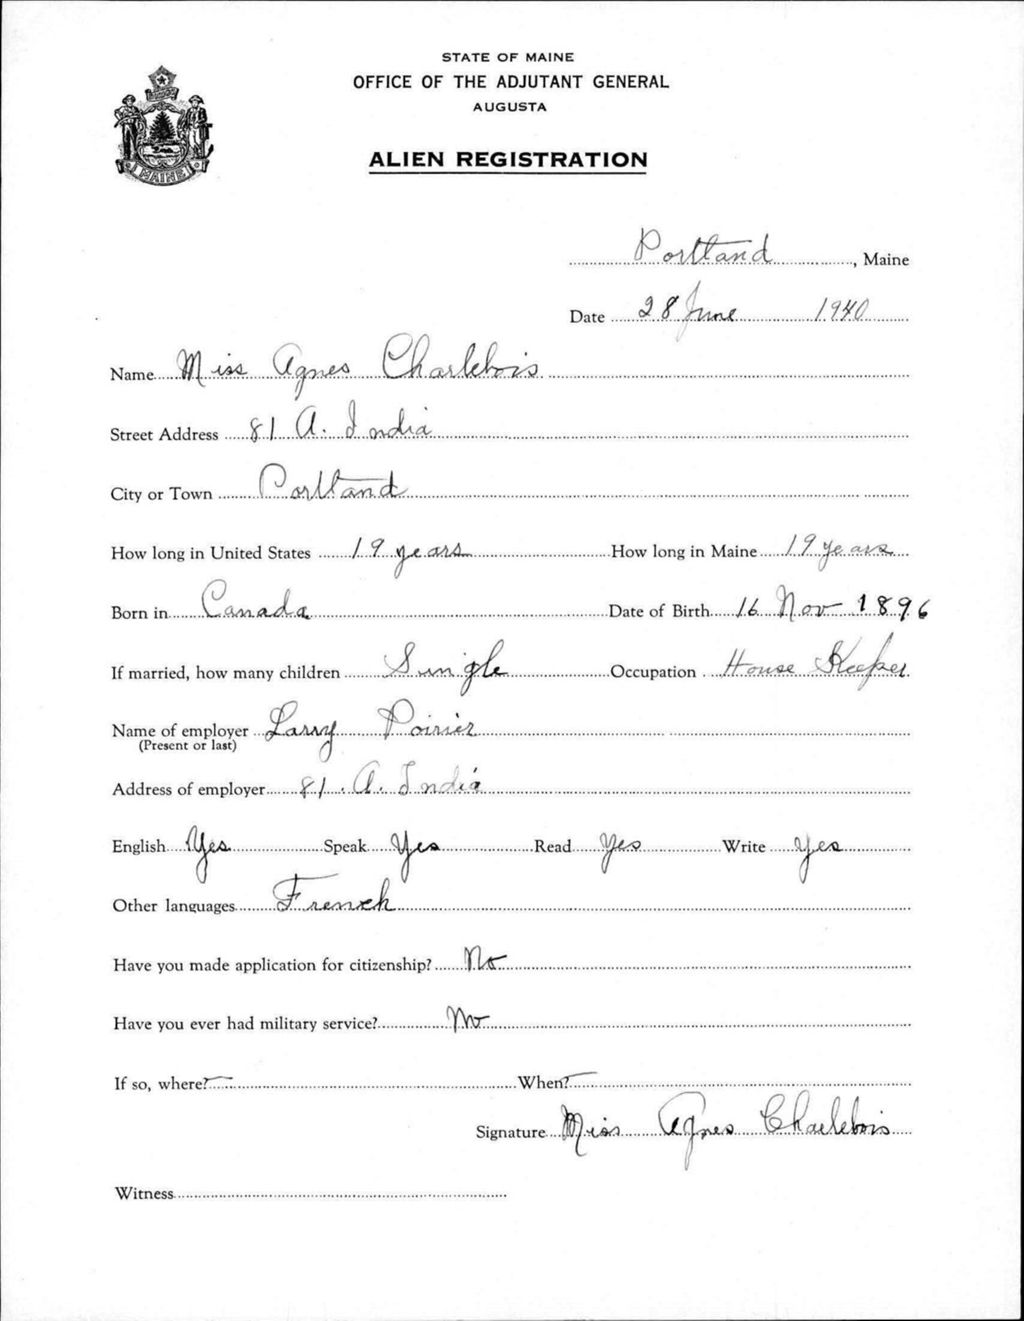 STATE OF MAINE
OFFICE OF THE ADJUTANT GENERAL
AUGUSTA
ALIEN REGISTRATION
MAINE
Portland, Maine
Date 28 June 1940
Name Miss Agnes Charlebois
Street Address 81 A. India
City or Town Portland
How long in United States 19 years How long in Maine 19 years
Born in Canada Date of Birth 16 Nov 1896
If married, how many children Single Occupation House Keeper
Name of employer Larry Poirier
(Present or last)
Address of employer 81. A. India
English Yes Speak Yes Read Yes Write Yes
Other languages French
Have you made application for citizenship? No
Have you ever had military service? No
If so, where? — When? —
Signature Miss Agnes Charlebois
Witness